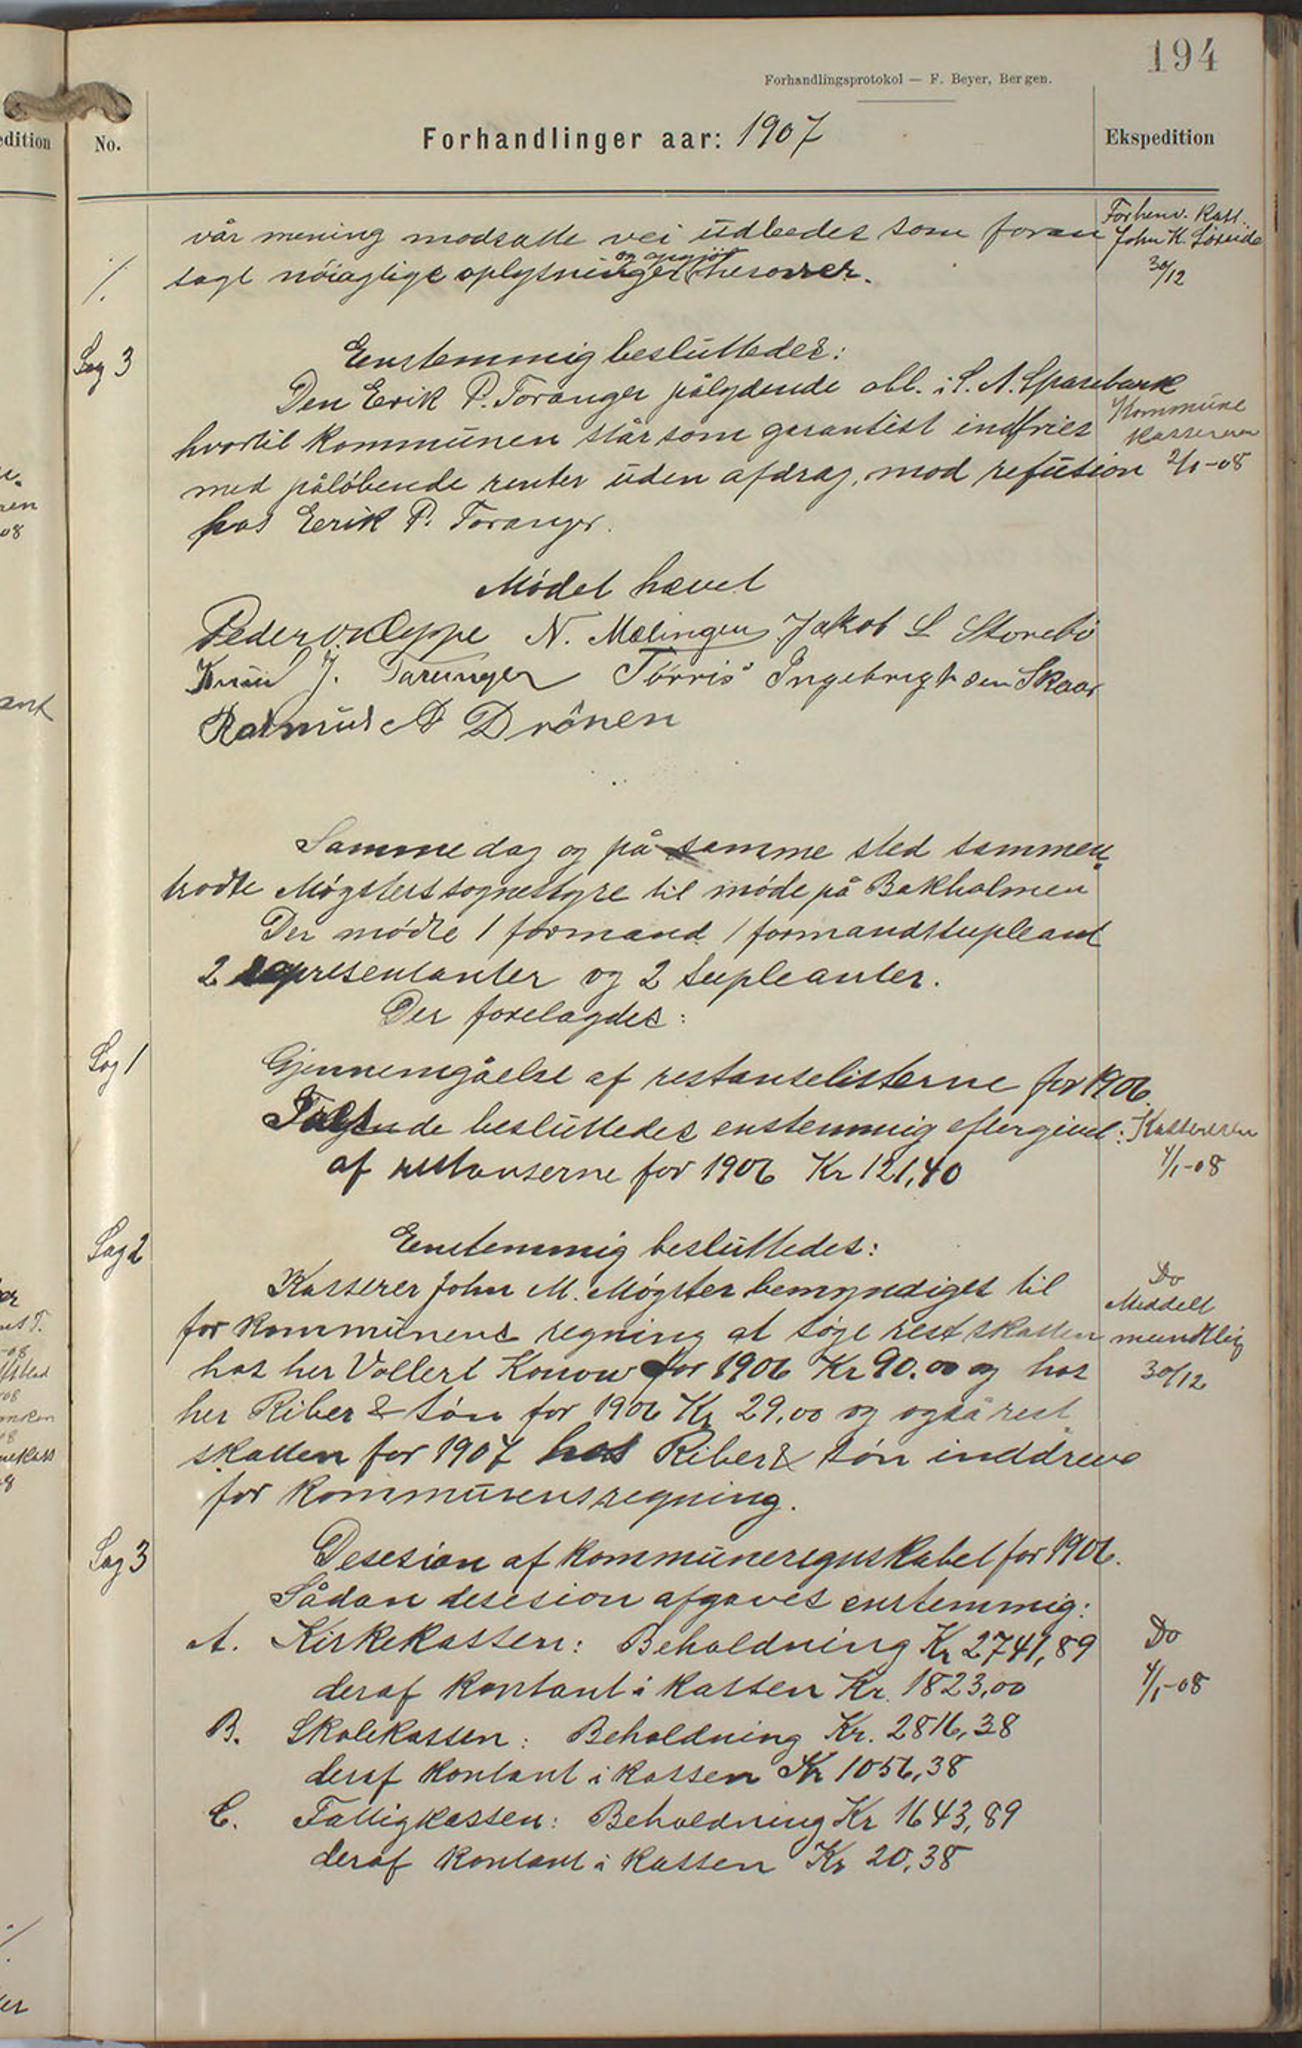 194
Forhandlingsprotokol — F. Beyer, Bergen.
edition No. Forhandlinger aar: 1907 Ekspedition
vår mening modsatte vei udbedes som foran
Forhenv. Kass.
John K. Søreide
30/12
sagt nöiagtige oplysninger og opgjör herover.
Sag 3 Eenstemmig besluttedes:
Den Erik P. Toranger pålydende obl. i S. A. Sparebank
hvortil kommunen står som garantist indfries
Kommune
kassereren
2/1-08
med påløbende renter uden afdrag, mod refusion
hos Eerik P. Toranger.
Mødet hævet
Peder N. Mælingen Jakob L Storebö
Knud J. Taranger Tørris Ingebrigtsen Skaar
Rasmus A Drönen
Samme dag og på samme sted sammen„
trådte Møgsters sognestyre til møde på Bakholmen
Der mødte 1 formand 1 formandsupleant
2 representanter og 2 supleanter.
Der forelagdes:
Sag 1 Gjennemgåelse af restanselisterne for 1906.
Følgende besluttedes enstemmig eftergivet: Kassereren
4/1-08
af restanserne for 1906 Kr 121,40
Sag 2 Eenstemmig besluttedes:
Kasserer John M. Møgster bemyndiges til
Do
Meddelt
mundtlig
30/12
for kommunens regning at søge restskatten
hos her Vollert Konow for 1906 Kr 90.00 og hos
her Riber & Søn for 1906 Kr 29,00 og også rest
skatten for 1907 hos Riber & søn inddreve
for kommunens regning.
Sag 3 Desesion af kommuneregnskabet for 1906.
Sådan desesion afgaves enstemmig:
A. Kirkekassen: Beholdning Kr 2741,89
Do
4/1-08
deraf kontant i kassen Kr. 1823,00
B. Skolekassen: Beholdning Kr. 2816,38
deraf kontant i kassen Kr 1056,38
C. Fattigkassen: Beholdning Kr 1643,89
deraf kontant i kassen Kr 20,38